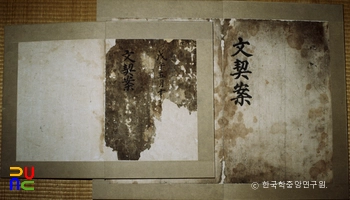 文契案
文契案
© 한국학중앙연구원